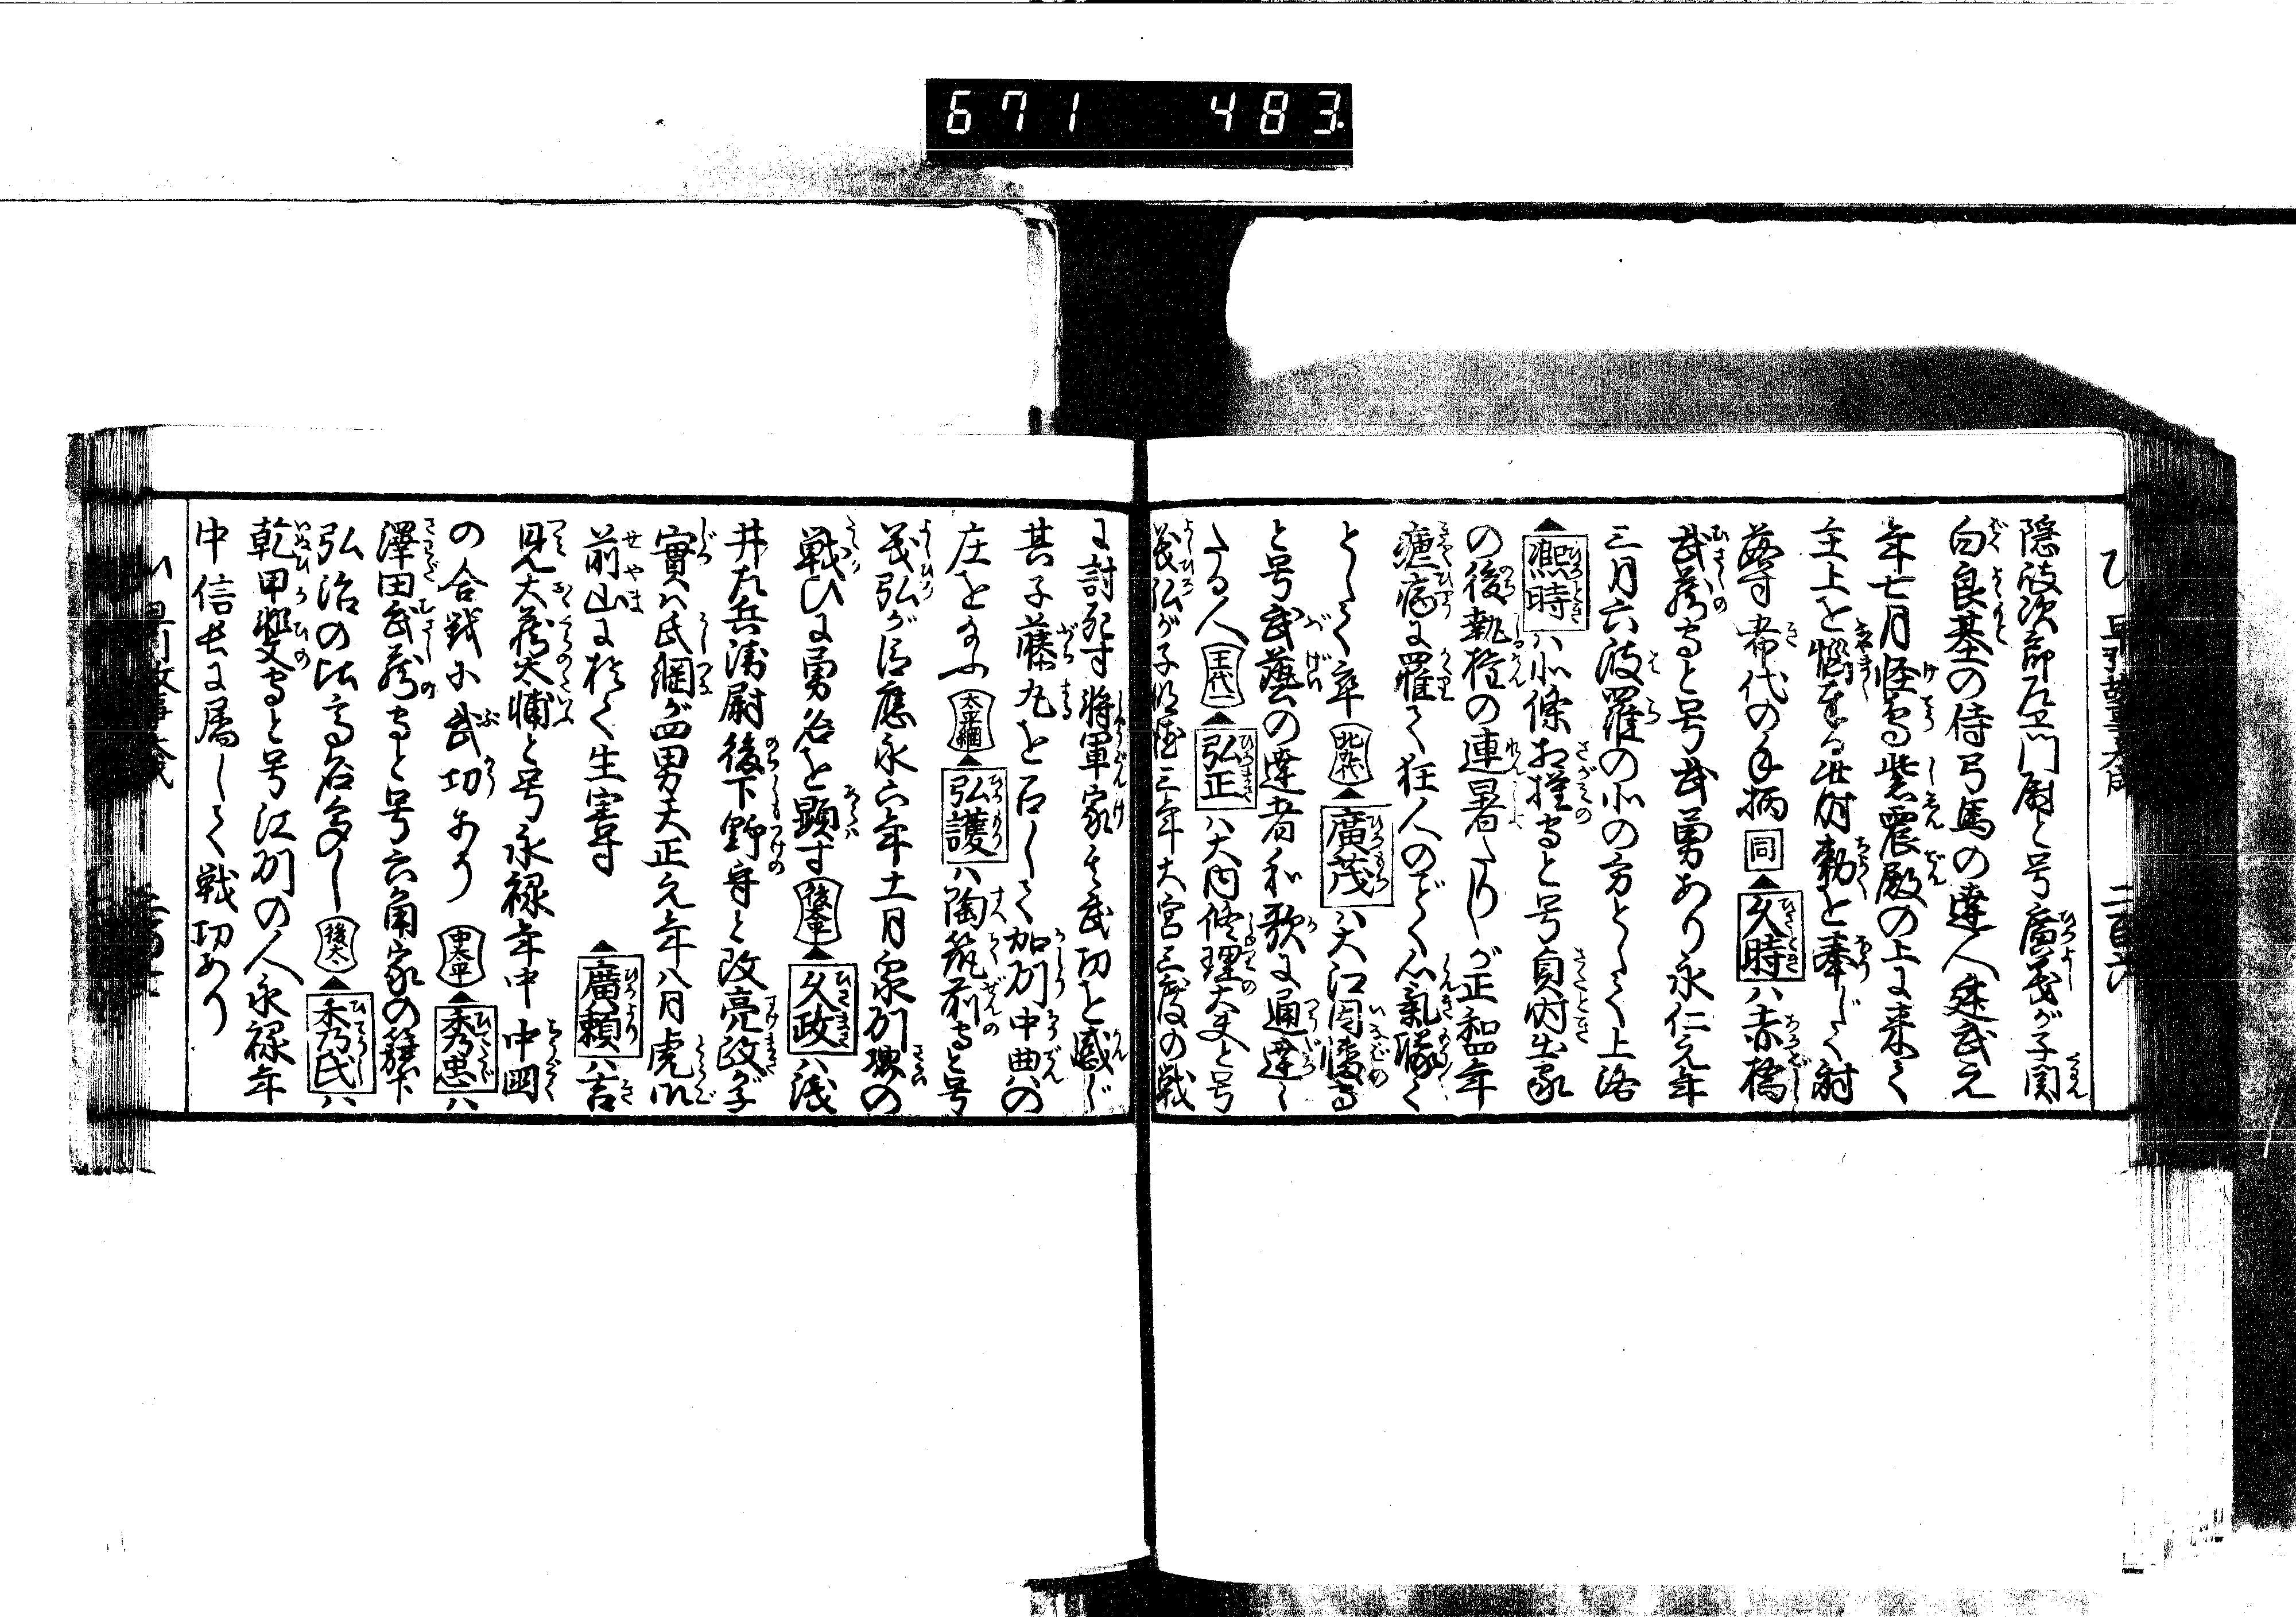 671 483
隠岐次郎左エ門尉と号廣義が子関
白良基の侍弓馬の達人建武元
年七月怪鳥紫震殿の上に来て
主上を悩奉る此時勅を奉じて射
落す希代の手柄 同 ▲久時ハ赤橋
武蔵守と号武勇あり永仁元年
三月六波羅の北の方として上洛
▲凞時ハ北條相摸守と号貞時出家
の後執権の連署たりしが正和四年
瘧病に罹て狂人のごとく心氣隊く
として卒 北九代 ▲廣茂ハ大江因幡守
と号武藝の達者和歌に通達し
たる人 王代一 ▲弘正ハ大内修理大夫と号
義弘が子明徳三年大宮三度の戦
に討死す将軍家其武功を感じ
其子藤丸を召して加州中曲の
庄を給ふ 太平綱 ▲弘護ハ陶筑前守と号
義弘が臣應永六年十一月泉州堺の
戦ひに勇名を顕す 後太平 ▲久政ハ浅
井左兵衛尉後下野守と改亮政が子
實ハ氏綱が四男天正元年八月虎御
前山に於て生害す ▲廣頼ハ吉
見大蔵太輔と号永禄年中中国
の合戦に武功あり 中太平 ▲秀忠ハ
澤田武蔵守と号六角家の籏下
弘治の比高名多し 後太 ▲秀氏ハ
乾甲斐守と号江州の人永禄年
中信長に属して戦功あり